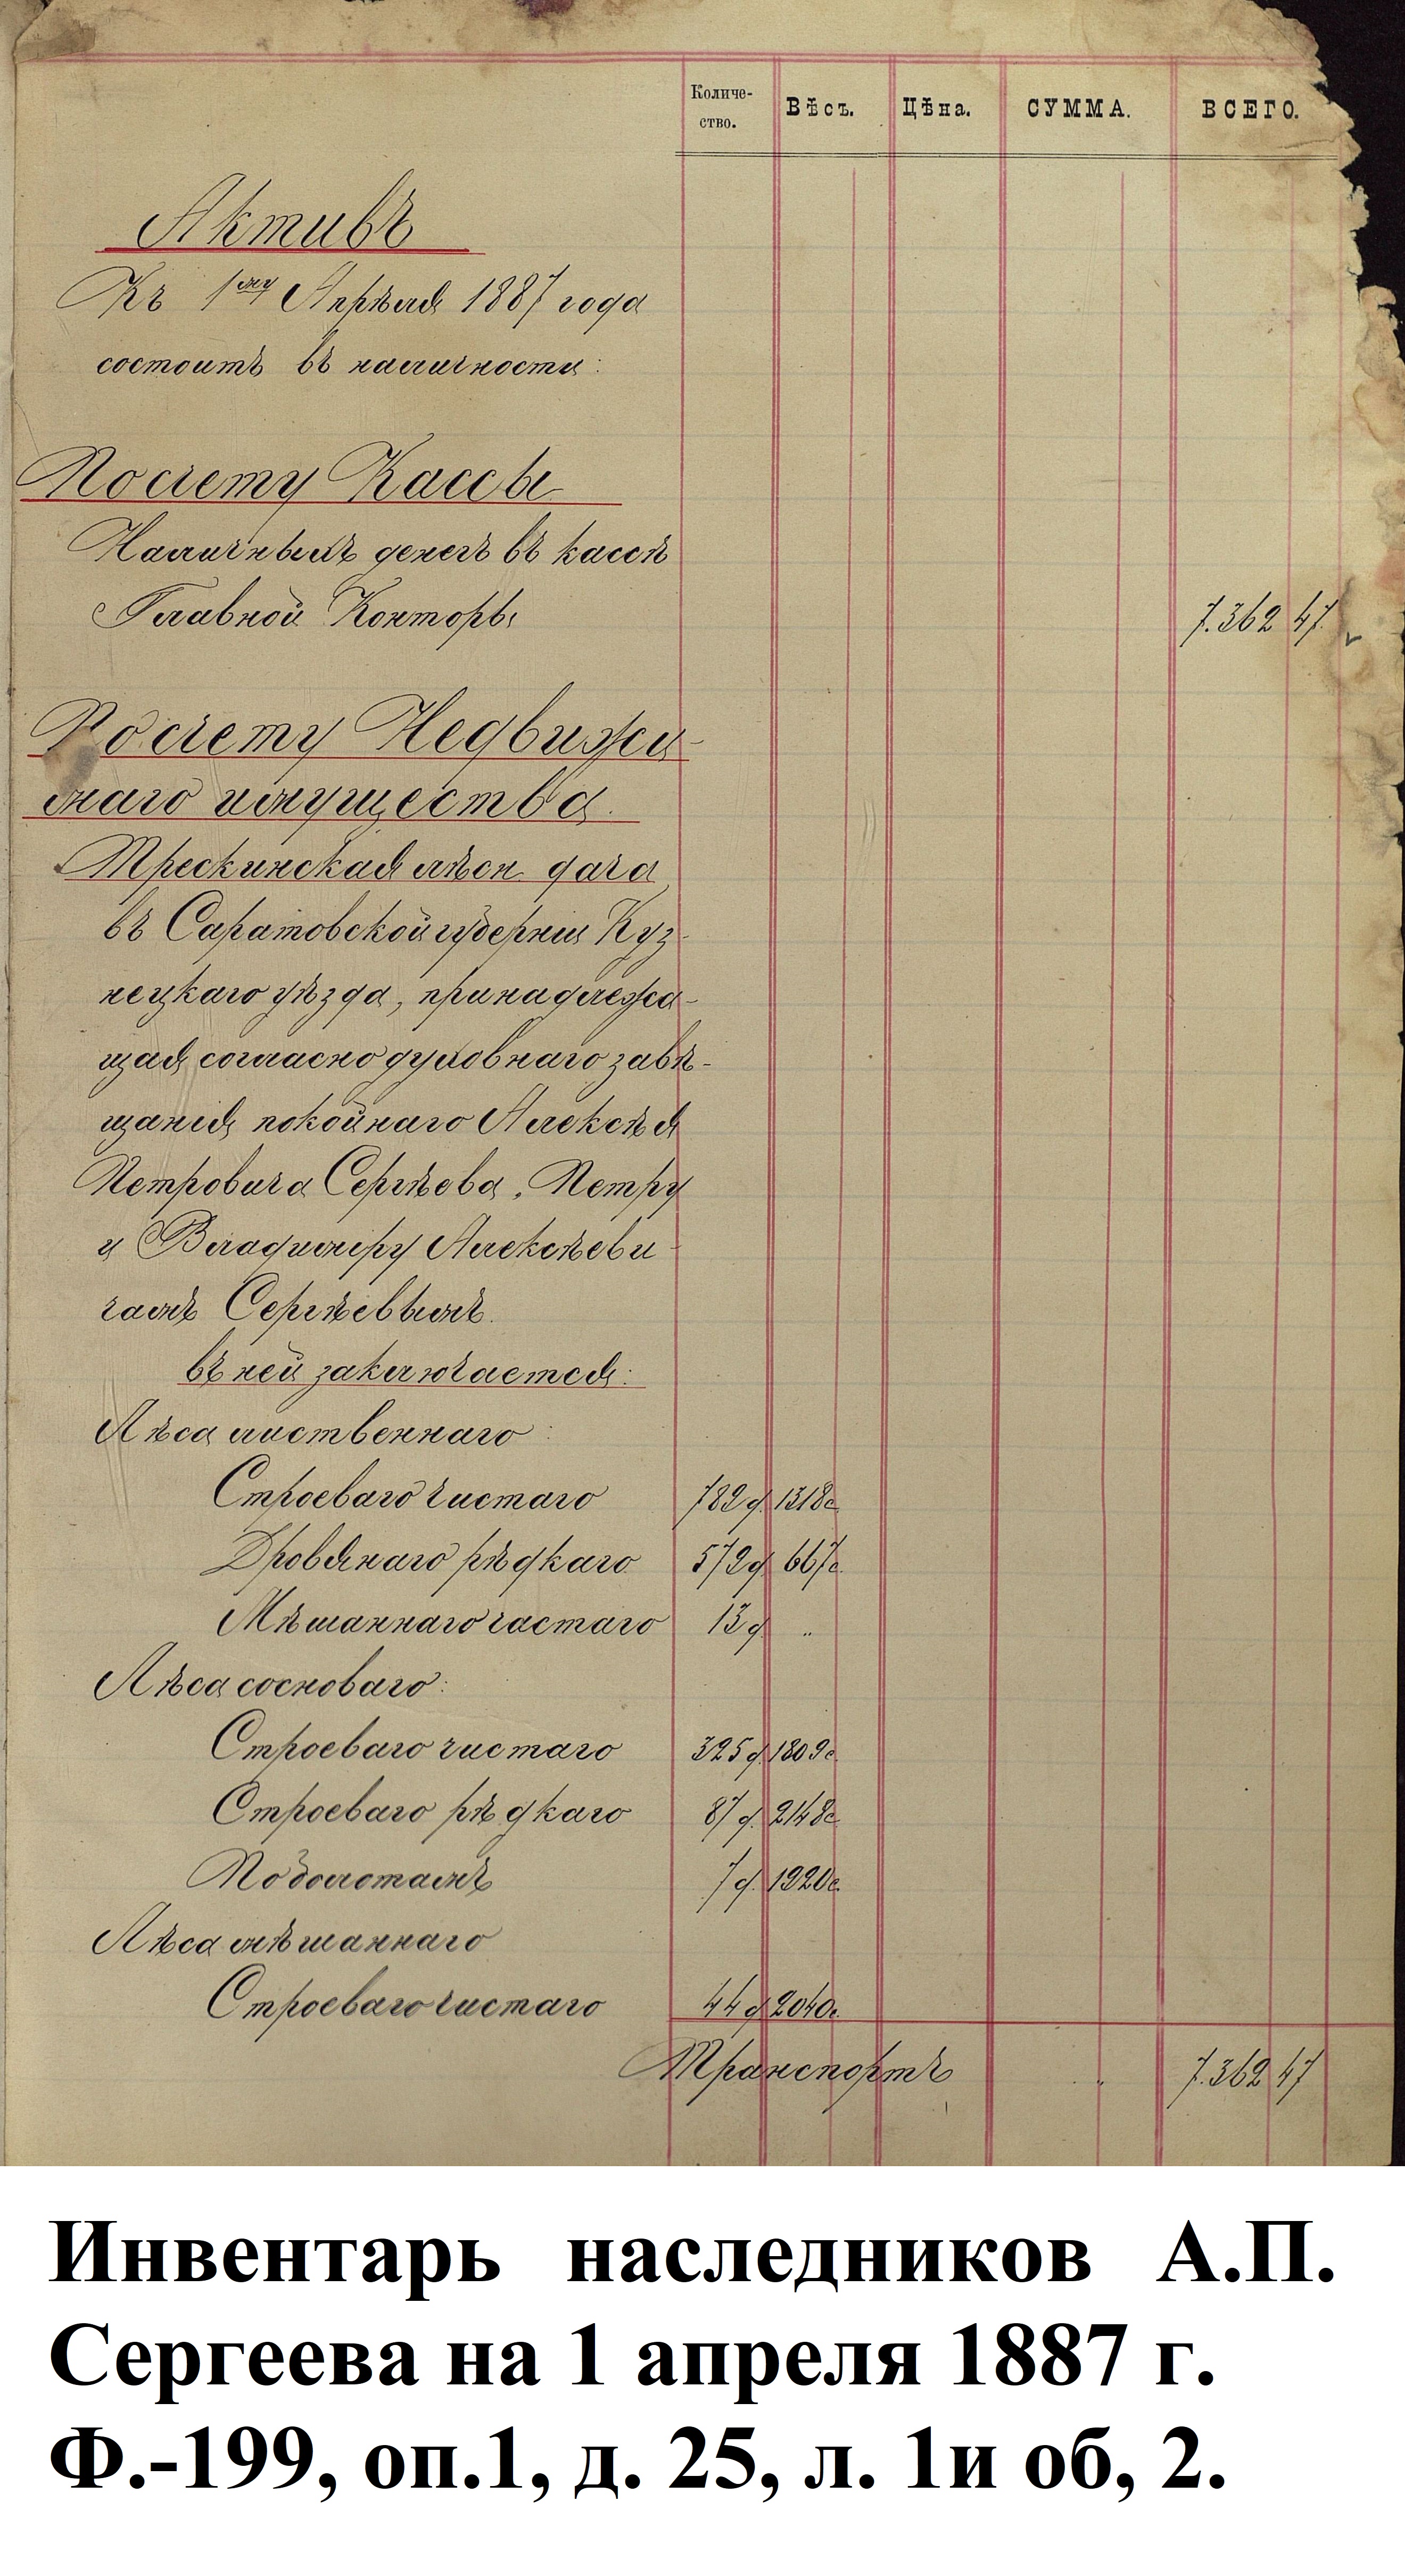 Количе-
ство.
Вѣсъ.
Цѣна.
СУММА.
ВСЕГО.
Активъ
Къ 1му Апрѣля 1887 года
состоитъ въ наличности:
По счету Кассы
Наличныхъ денегъ въ кассѣ
Главной Конторы 7.362 47
По счету Недвижи-
маго имущества.
Трескинская лѣсн. дача
въ Саратовской губерніи Куз-
нецкаго уѣзда, принадлежа-
щая согласно духовнаго завѣ-
щанія покойнаго Алексѣя
Петровича Сергѣева, Петру
и Владиміру Алексѣеви-
чамъ Сергѣевымъ.
въ ней заключается:
Лѣса лиственнаго:
Строеваго чистаго 782 д. 1318 с.
Дровянаго рѣдкаго 572 д. 667 с.
Мѣшаннаго частаго 13 д. "
Лѣса сосноваго:
Строеваго чистаго 325 д. 1809 с.
Строеваго рѣдкаго 87 д. 2148 с.
По болотамъ 7 д. 1920 с.
Лѣса мѣшаннаго
Строеваго чистаго 44 д. 2040 с.
Транспортъ " 7.362 47
Инвентарь наследников А.П.
Сергеева на 1 апреля 1887 г.
Ф.-199, оп.1, д. 25, л. 1и об, 2.